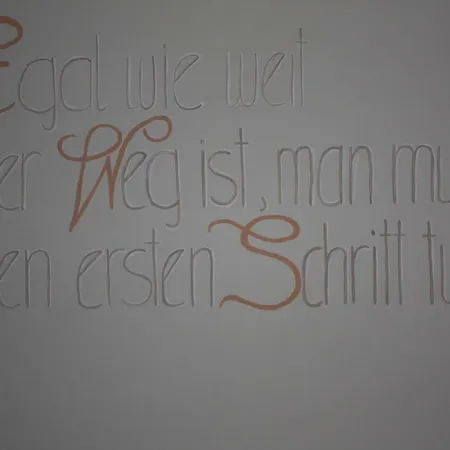 Egal wie weit
er Weg ist, man mu
en ersten Schritt tu